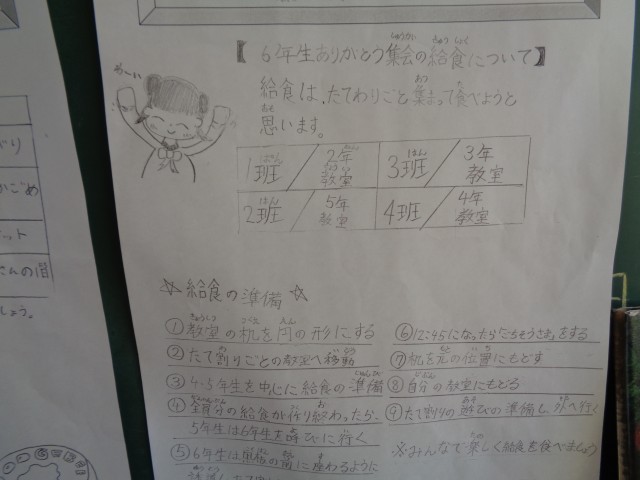 【6年生ありがとう集会の給食について】
わーい
給食は、たてわりごと集まって食べようと
思います。
1班/2年教室
3班/3年教室
2班/5年教室
4班/4年教室
☆給食の準備☆
①教室の机を円の形にする
②たて割りごとの教室へ移動
③4・5年生を中心に給食の準備
④全員分の給食が作り終わったら、
5年生は6年生を呼びに行く
⑤6年生は黒板の前に座るように
⑥12:45になったら「ごちそうさま」をする
⑦机を元の位置にもどす
⑧自分の教室にもどる
⑨たて割りの遊びの準備し、外へ行く
※みんなで楽しく給食を食べましょう
かごめ
さんの国
しょう。